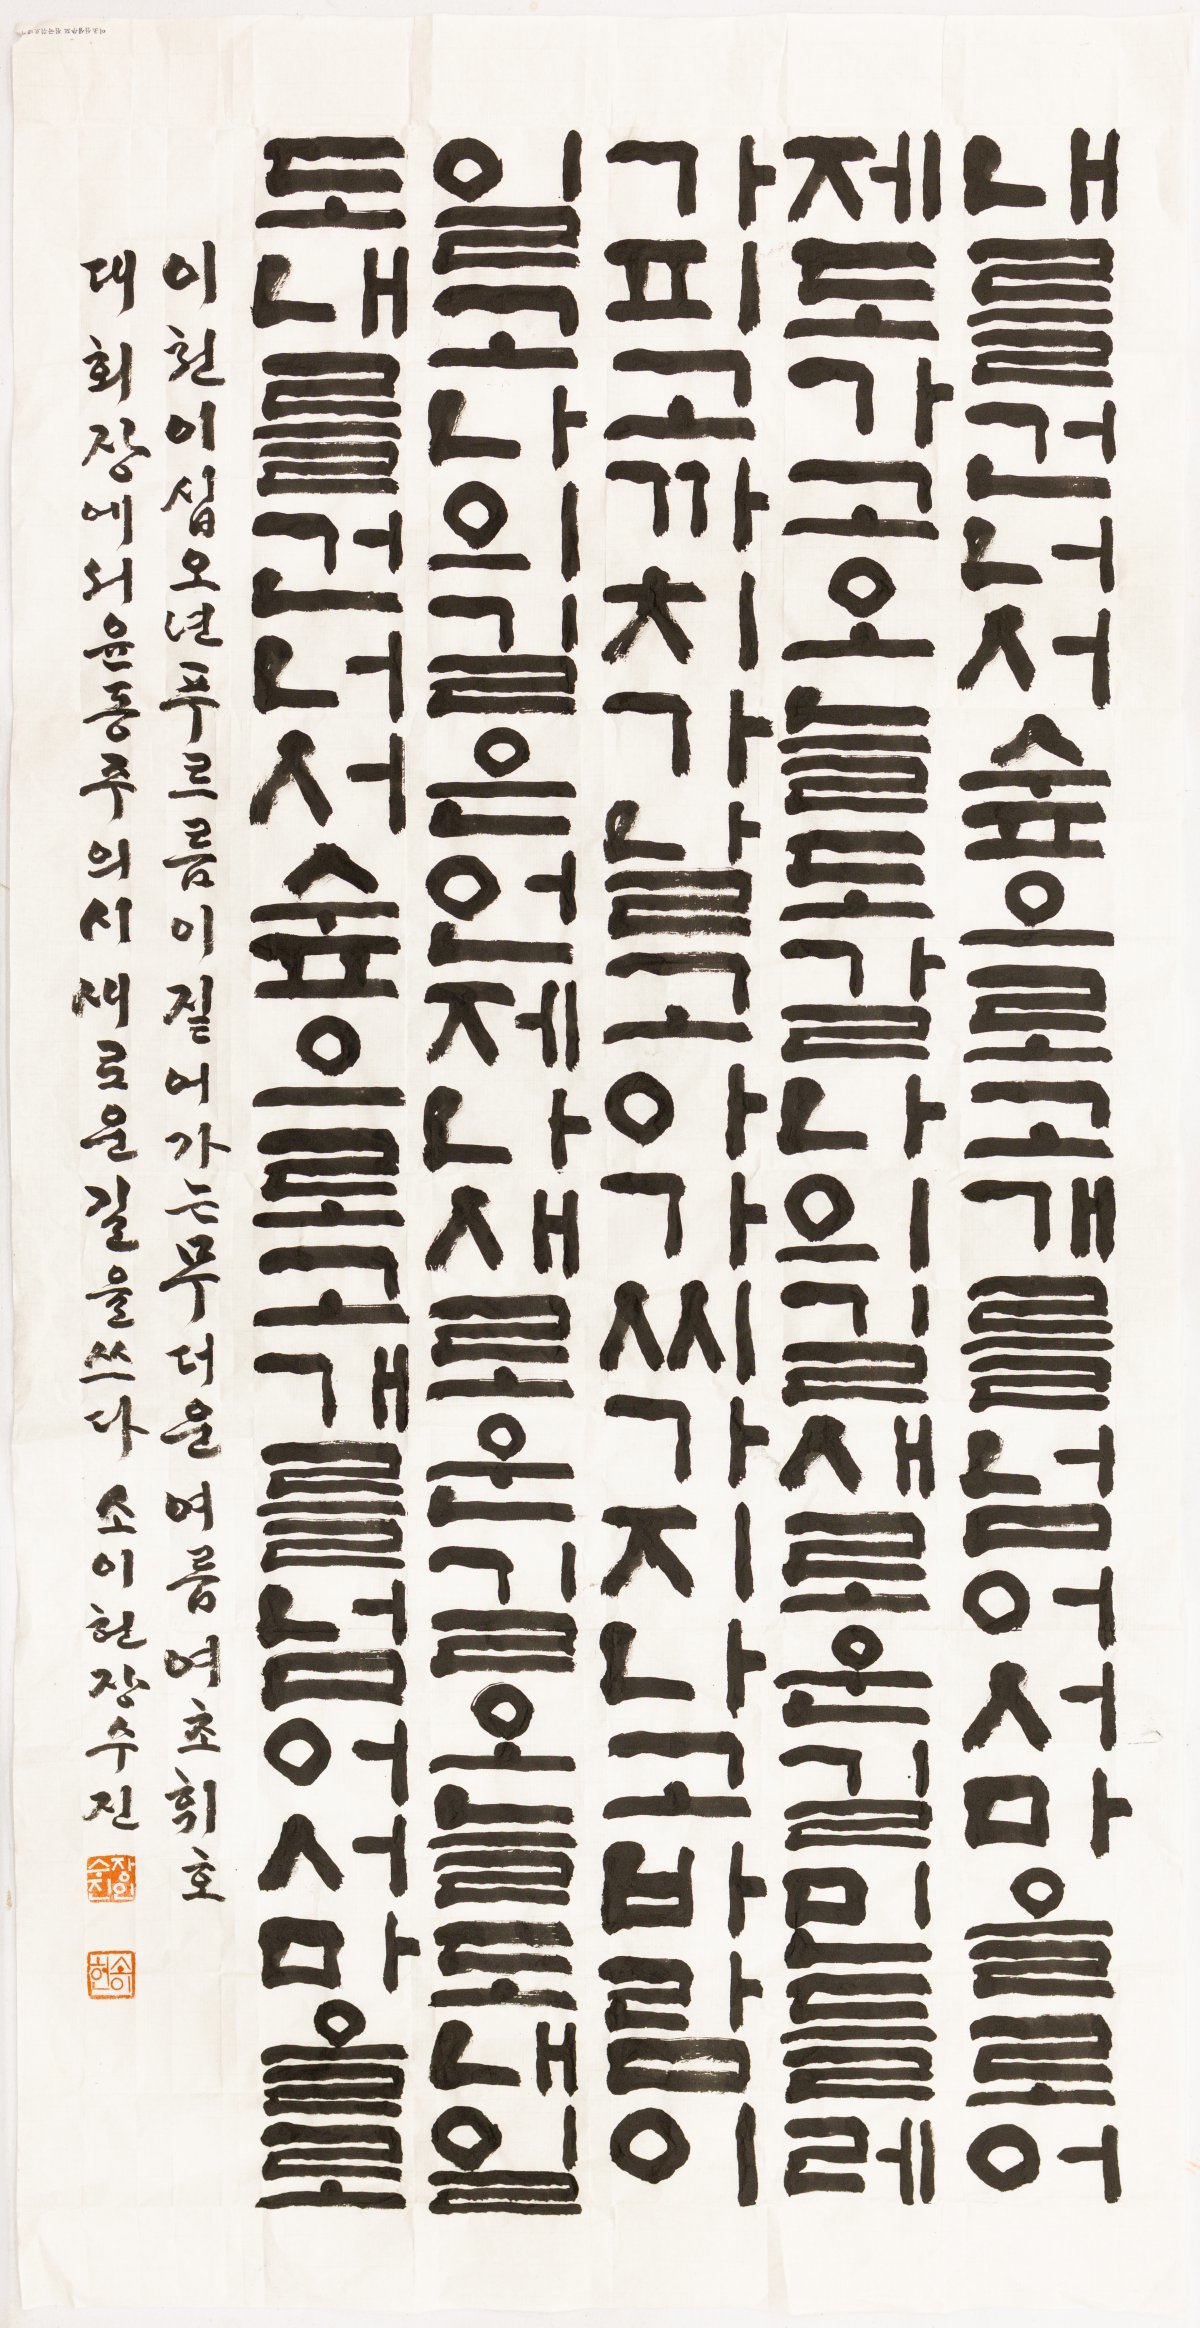 내를건너서숲으로고개를넘어서마을로어
제도가고오늘도갈나의길새로운길민들레
가피고까치가날고아가씨가지나고바람이
일고나의길은언제나새로운길오늘도내일
도내를건너서숲으로고개를넘어서마을로
이천이십오년푸르름이짙어가는무더운여름여초휘호
대회장에서윤동주의시새로운길을쓰다 소이헌장수진
장인수진
소이헌